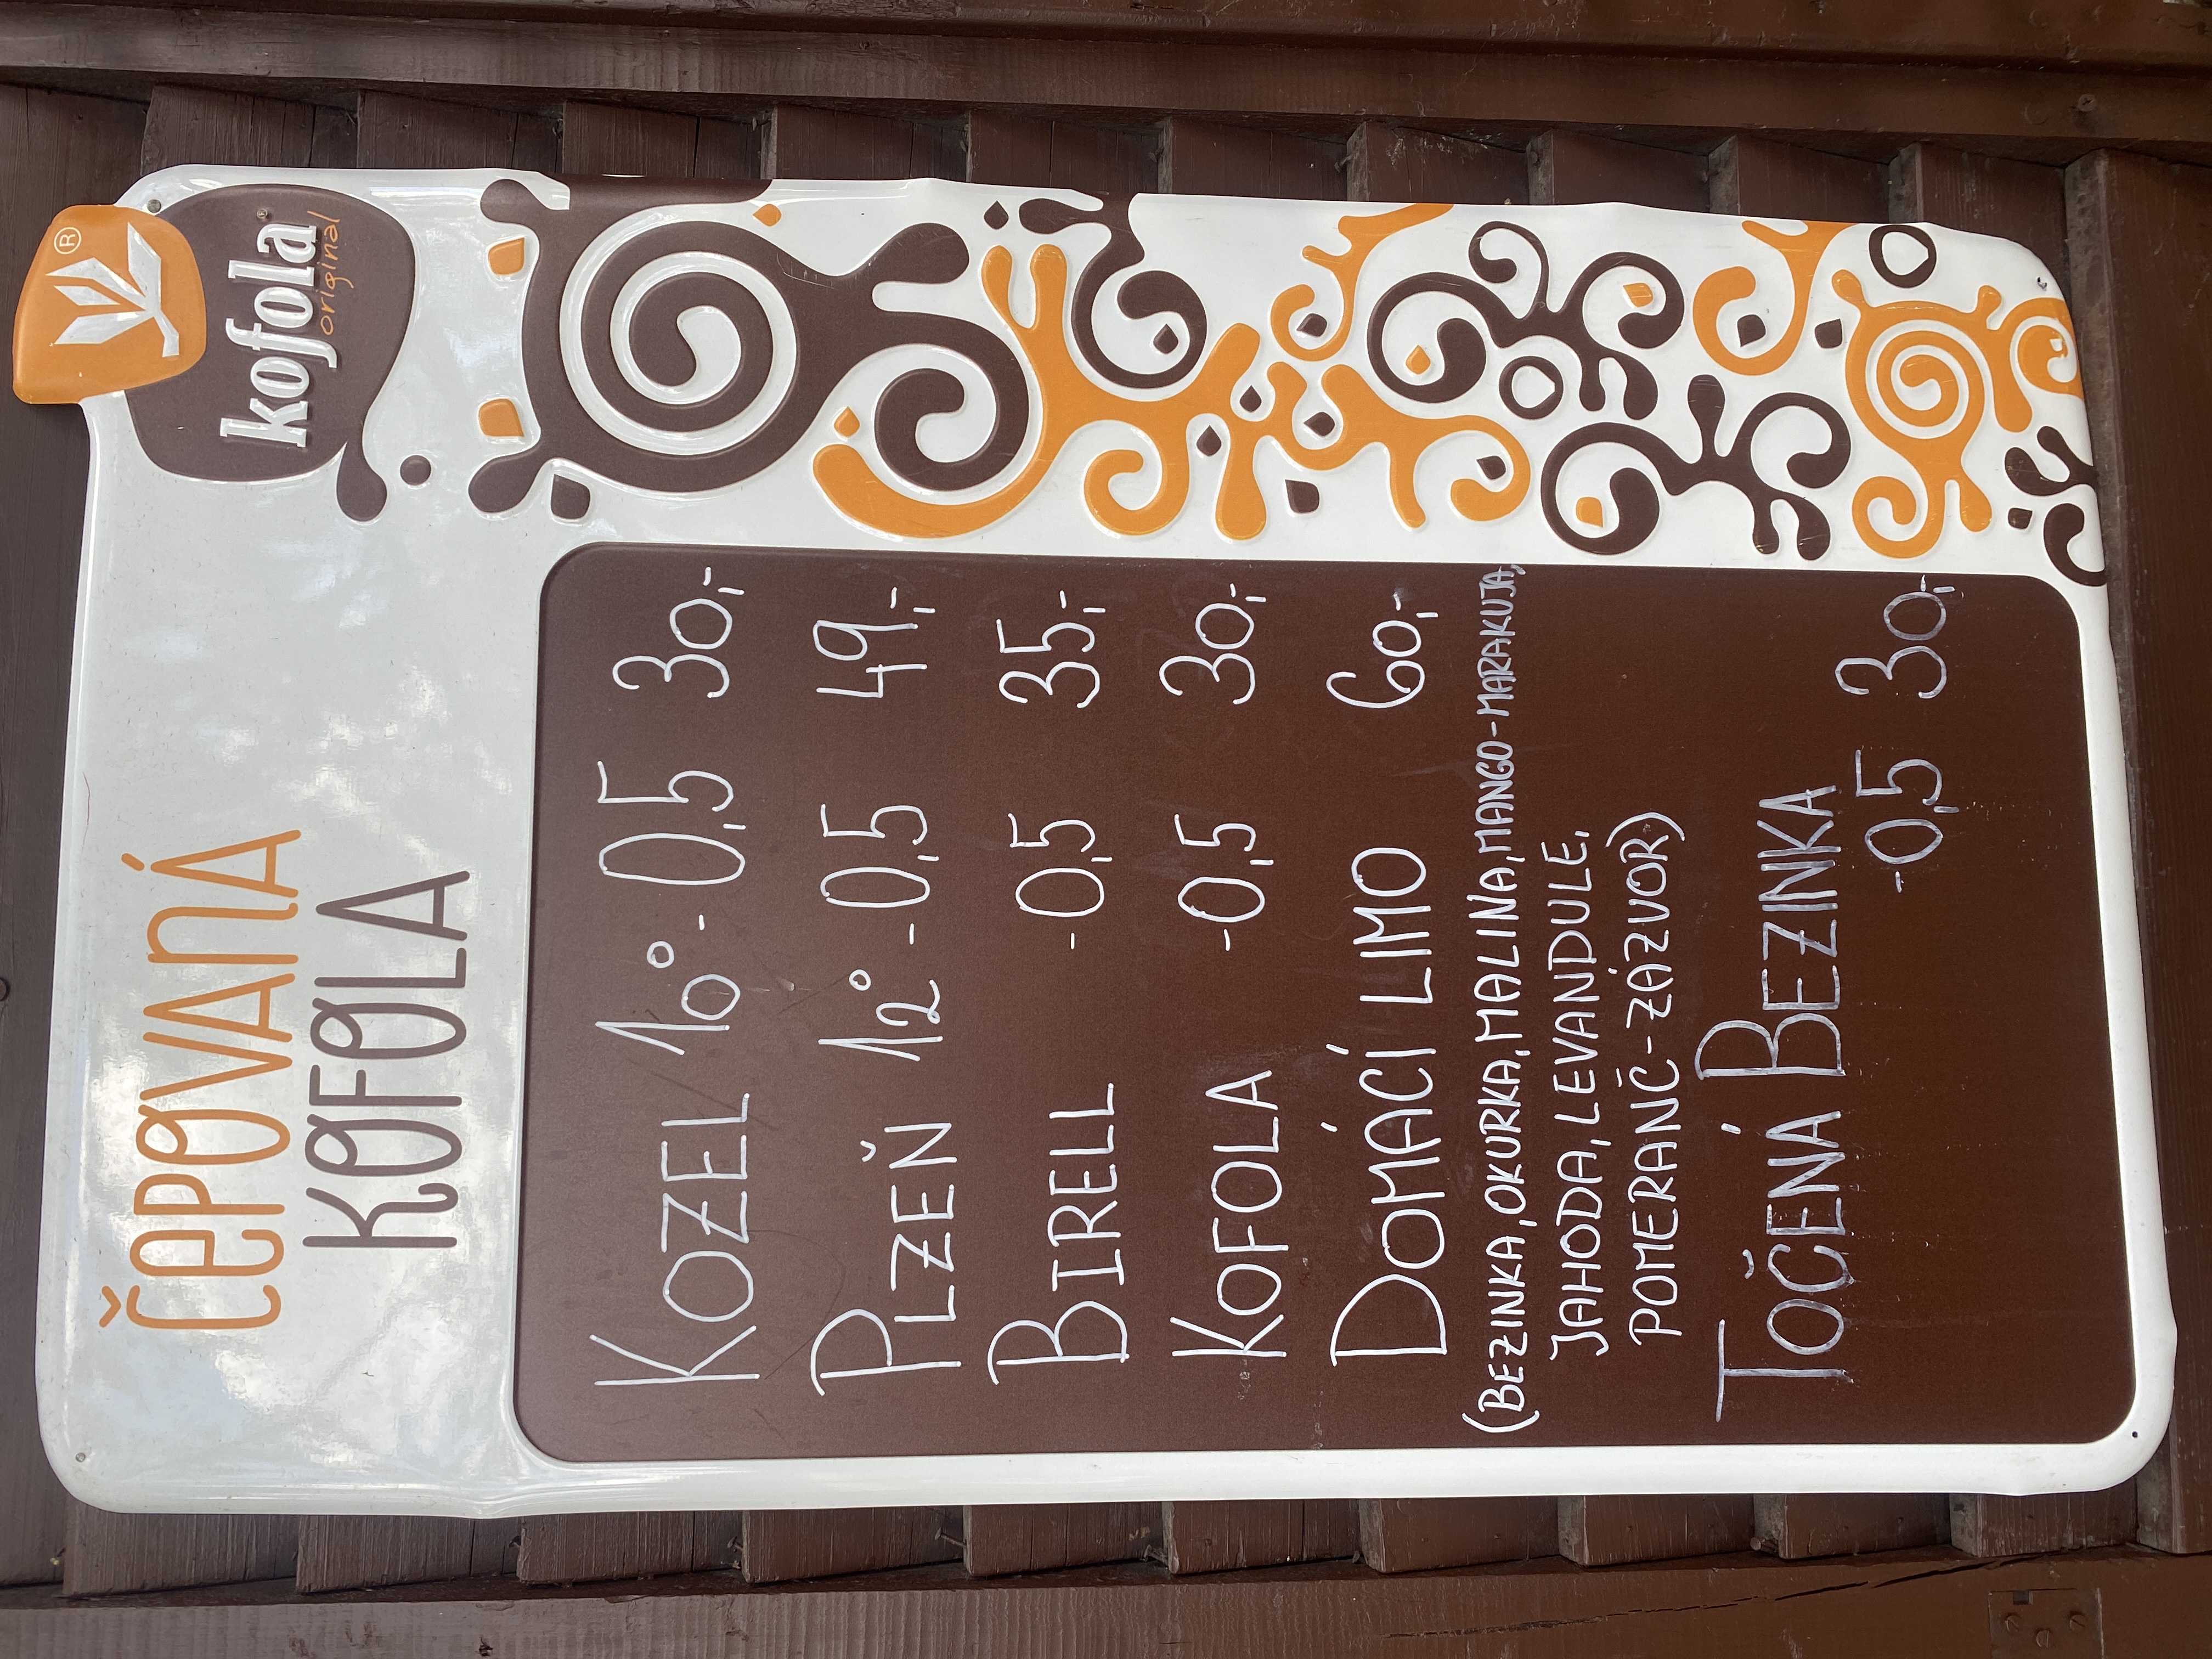 ®
kofola
original
čepovaná
KOFOLA
KOZEL 10° - 0,5 30,-
PLZEŇ 12° - 0,5 49,-
BIRELL - 0,5 35,-
KOFOLA - 0,5 30,-
DOMÁCÍ LIMO 60,-
(BEZINKA, OKURKA, MALINA, MANGO-MARAKUJA,
JAHODA, LEVANDULE,
POMERANČ-ZÁZVOR)
TOČENÁ BEZINKA
-0,5 30,-